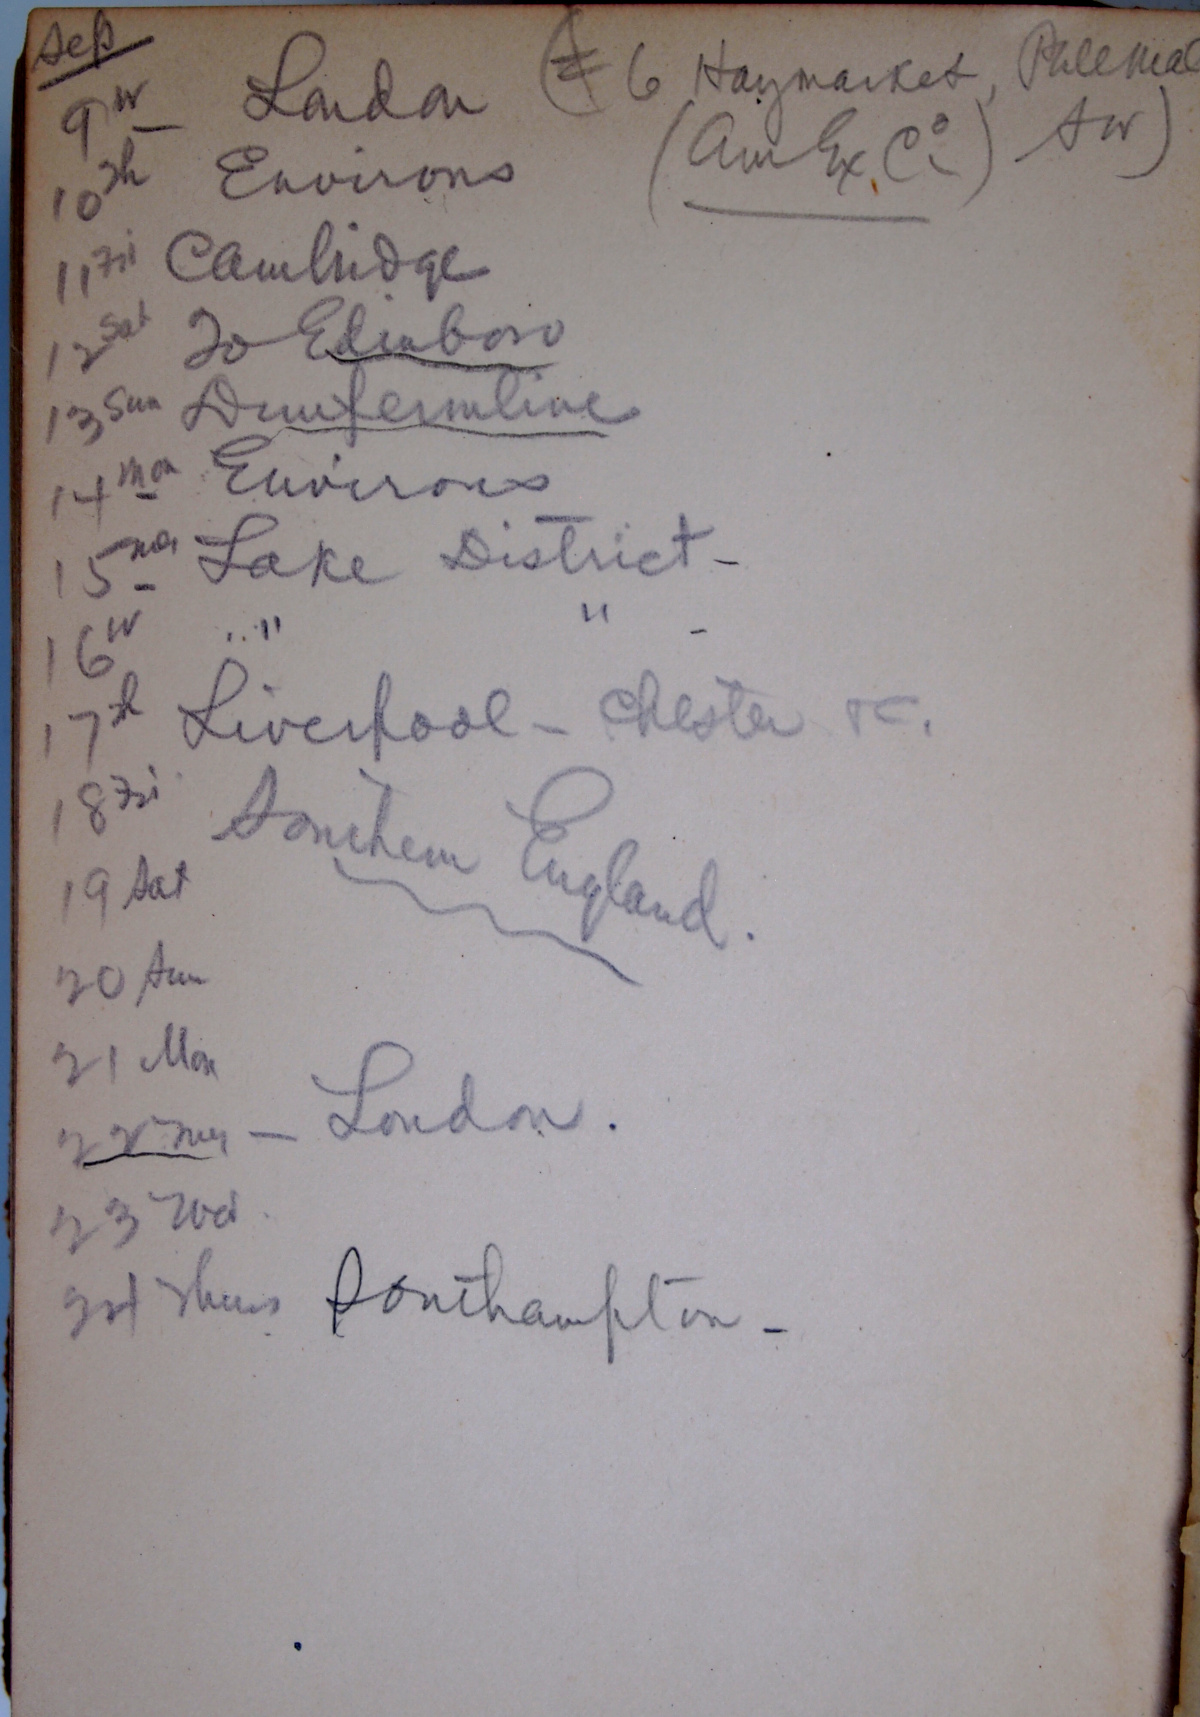 Sep
9 W London (# 6 Haymarket, Pall Mall
(Am Ex. Co) SW)
10 Th Environs
11 Fri Cambridge
12 Sat To Edinboro
13 Sun Dunfermline
14 Mon Environs
15 Tues Lake District -
16 W " " " -
17 Th Liverpool - Chester &c.
18 Fri Southern England.
19 Sat
20 Sun
21 Mon
22 Tues - London.
23 Wed.
24 Thurs Southampton -